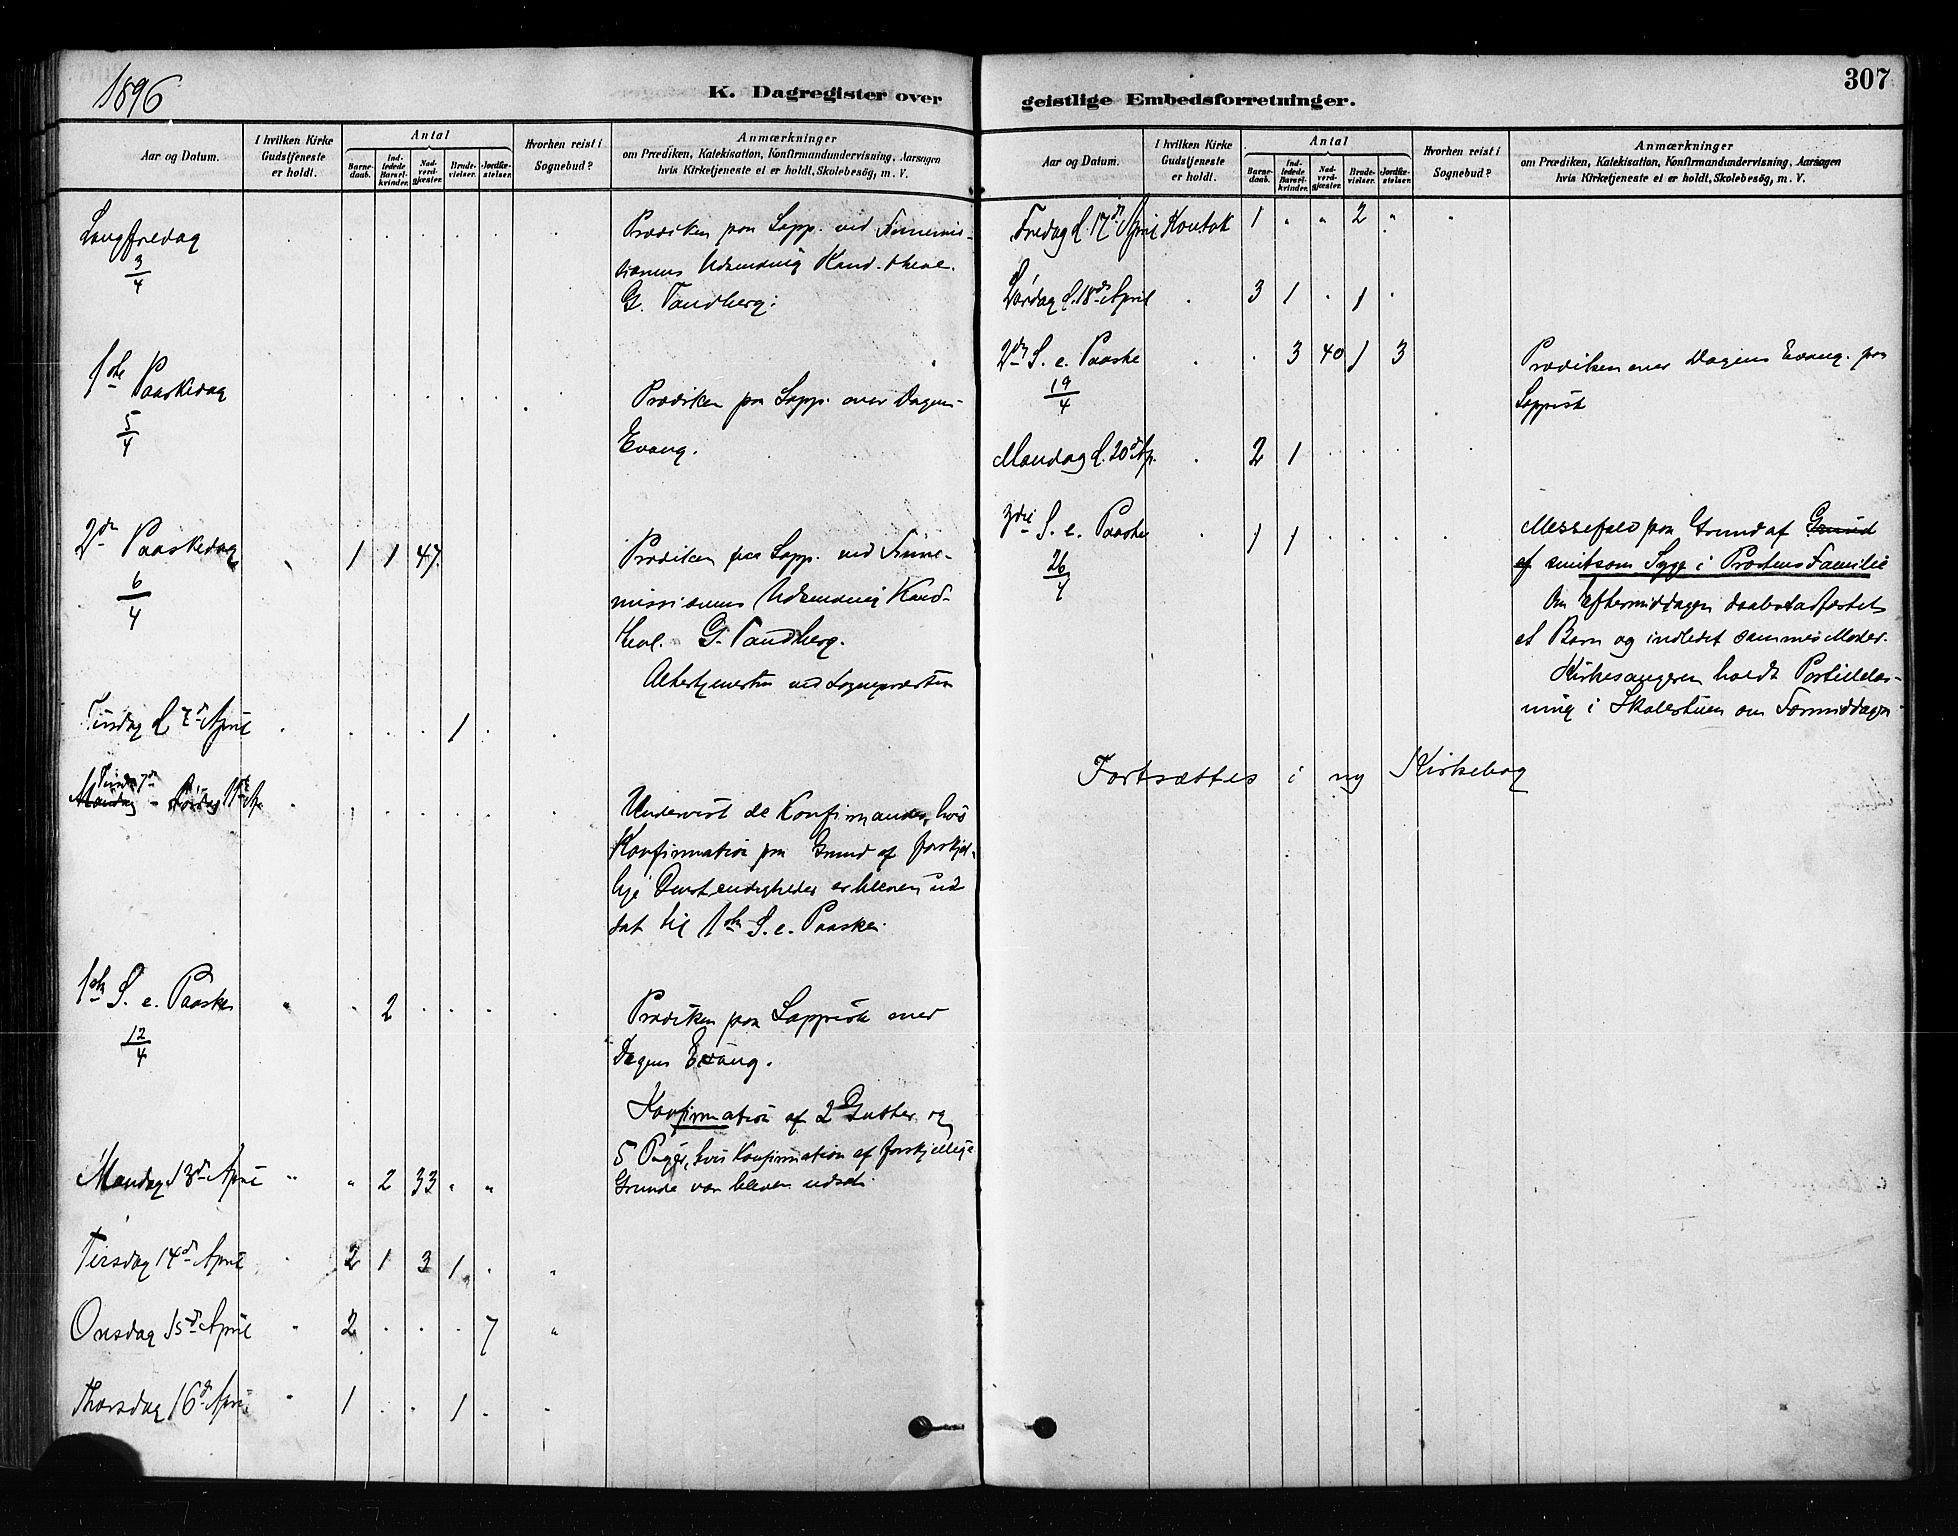 1896
K. Dagregister over
Aar og Datum.
I hvilken Kirke Gudstjeneste er holdt.
Antal
Barnedaab.
Indledede Barselkvinder.
Nadverdgjæster.
Brudevielser.
Jordfæstelser.
Hvorhen reist i Sognebud?
Anmærkninger
om Prædiken, Katekisation, Konfirmandundervisning, Aarsagen
hvis Kirketjeneste ei er holdt, Skolebesøg, m. V.
Langfredag 3/4
Prædiken paa Lapp. ved Finnemis-
sionens Udsending Kand. theol.
G. Tandberg.
1ste Paaskedag 5/4
Prædiken paa Lapp. over Dagens
Evang.
2den Paaskedag 6/4 " 1 1 47
Prædiken paa Lapp. ved Finne-
missionens Udsending Kand.
theol. G. Tandberg.
Altertjenesten ved Sognepræsten
Tirsdag d 7de April 1
Mandag Tirsdag 7de - Lørdag 11te Ap.
Undervist de Konfirmander, hvis
Konfirmation paa Grund af forskjel-
lige Omstændigheder er bleven ud
sat til 1ste S. e. Paaske.
1ste S. e. Paaske 12/4 " 2
Prædiken paa Lappisk over
Dagens Evang.
Konfirmation af 2 Gutter og
5 Piger, hvis Konfirmation af forskjellige
Grunde var bleven udsat.
Mandag 13de April " " 2 33 " "
Tirsdag 14de April " 2 1 3 1 "
Onsdag 15de April " 2 7 "
Thorsdag 16de April " 1 1
307
geistlige Embedsforretninger.
Aar og Datum.
I hvilken Kirke Gudstjeneste er holdt.
Antal
Barnedaab.
Indledede Barselkvinder.
Nadverdgjæster.
Brudevielser.
Jordfæstelser.
Hvorhen reist i Sognebud?
Anmærkninger
om Prædiken, Katekisation, Konfirmandundervisning, Aarsagen
hvis Kirketjeneste ei er holdt, Skolebesøg, m. V.
Fredag d. 17de April Koutok 1 " " 2 " "
Lørdag d. 18de April 3 1 1
2den S. e. Paaske 19/4 3 40 1 3
Prædiken over Dagens Evang. paa
Lappisk
Mandag d. 20de Ap. 2 1
3die S. e. Paaske 26/4 1 1
Messefald paa Grund af Grund
af smitsom Syge i Præstens Familie
Om Eftermiddagen daabstadfæstet
et Barn og indledet sammes Moder.
Kirkesangeren holdt Postillelæs-
ning i Skolestuen om Formiddagen
Fortsættes i ny Kirkebog